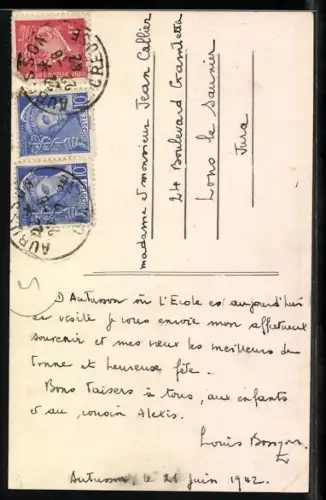 madame et monsieur Jean Callier
24 Boulevard Gambetta
Lons le Saunier
Jura
D'Aubusson où l'Ecole est aujourd'hui
en visite je vous envoie mon affectueux
souvenir et mes vœux les meilleurs de
bonne et heureuse fête.
Bons baisers à tous, aux enfants
et au cousin Alexis.
Louis
Aubusson, le 21 juin 1942.
AUBUSSON
CREUSE
10
10
AUBUSSON